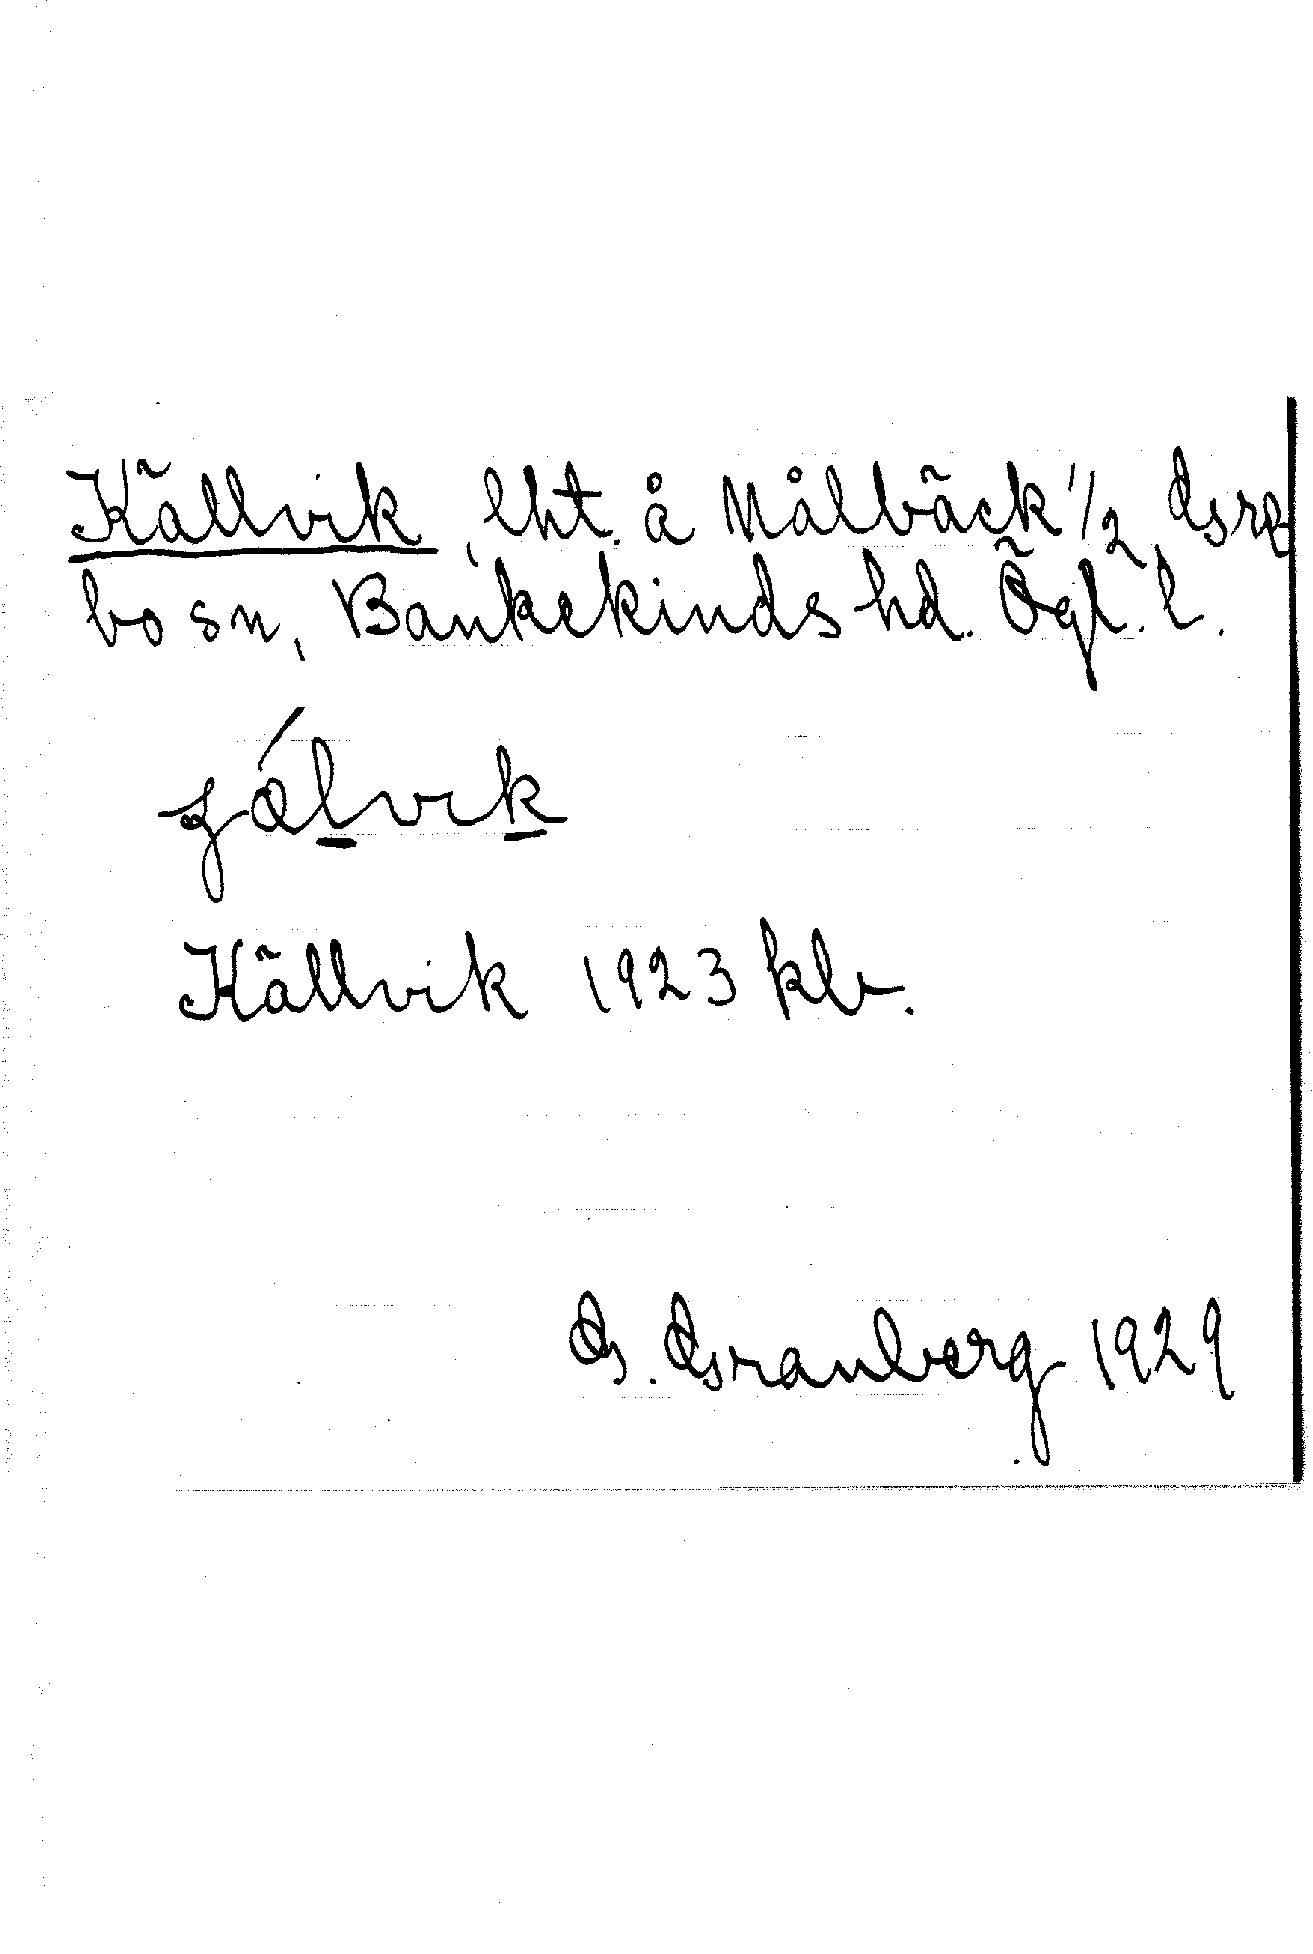 Källvik, lht. å Målbäck 1/2, Gre
bo sn, Bankekinds hd. Ögl. l.
Källvik 1923 klv.
G. Granberg 1929